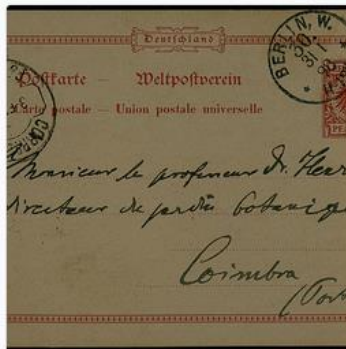 Deutschland
BERLIN, W.
Postkarte — Weltpostverein
Carte postale — Union postale universelle
Monsieur le professeur Dr. Henr
directeur du jardin botaniq
Coimbra
(Port